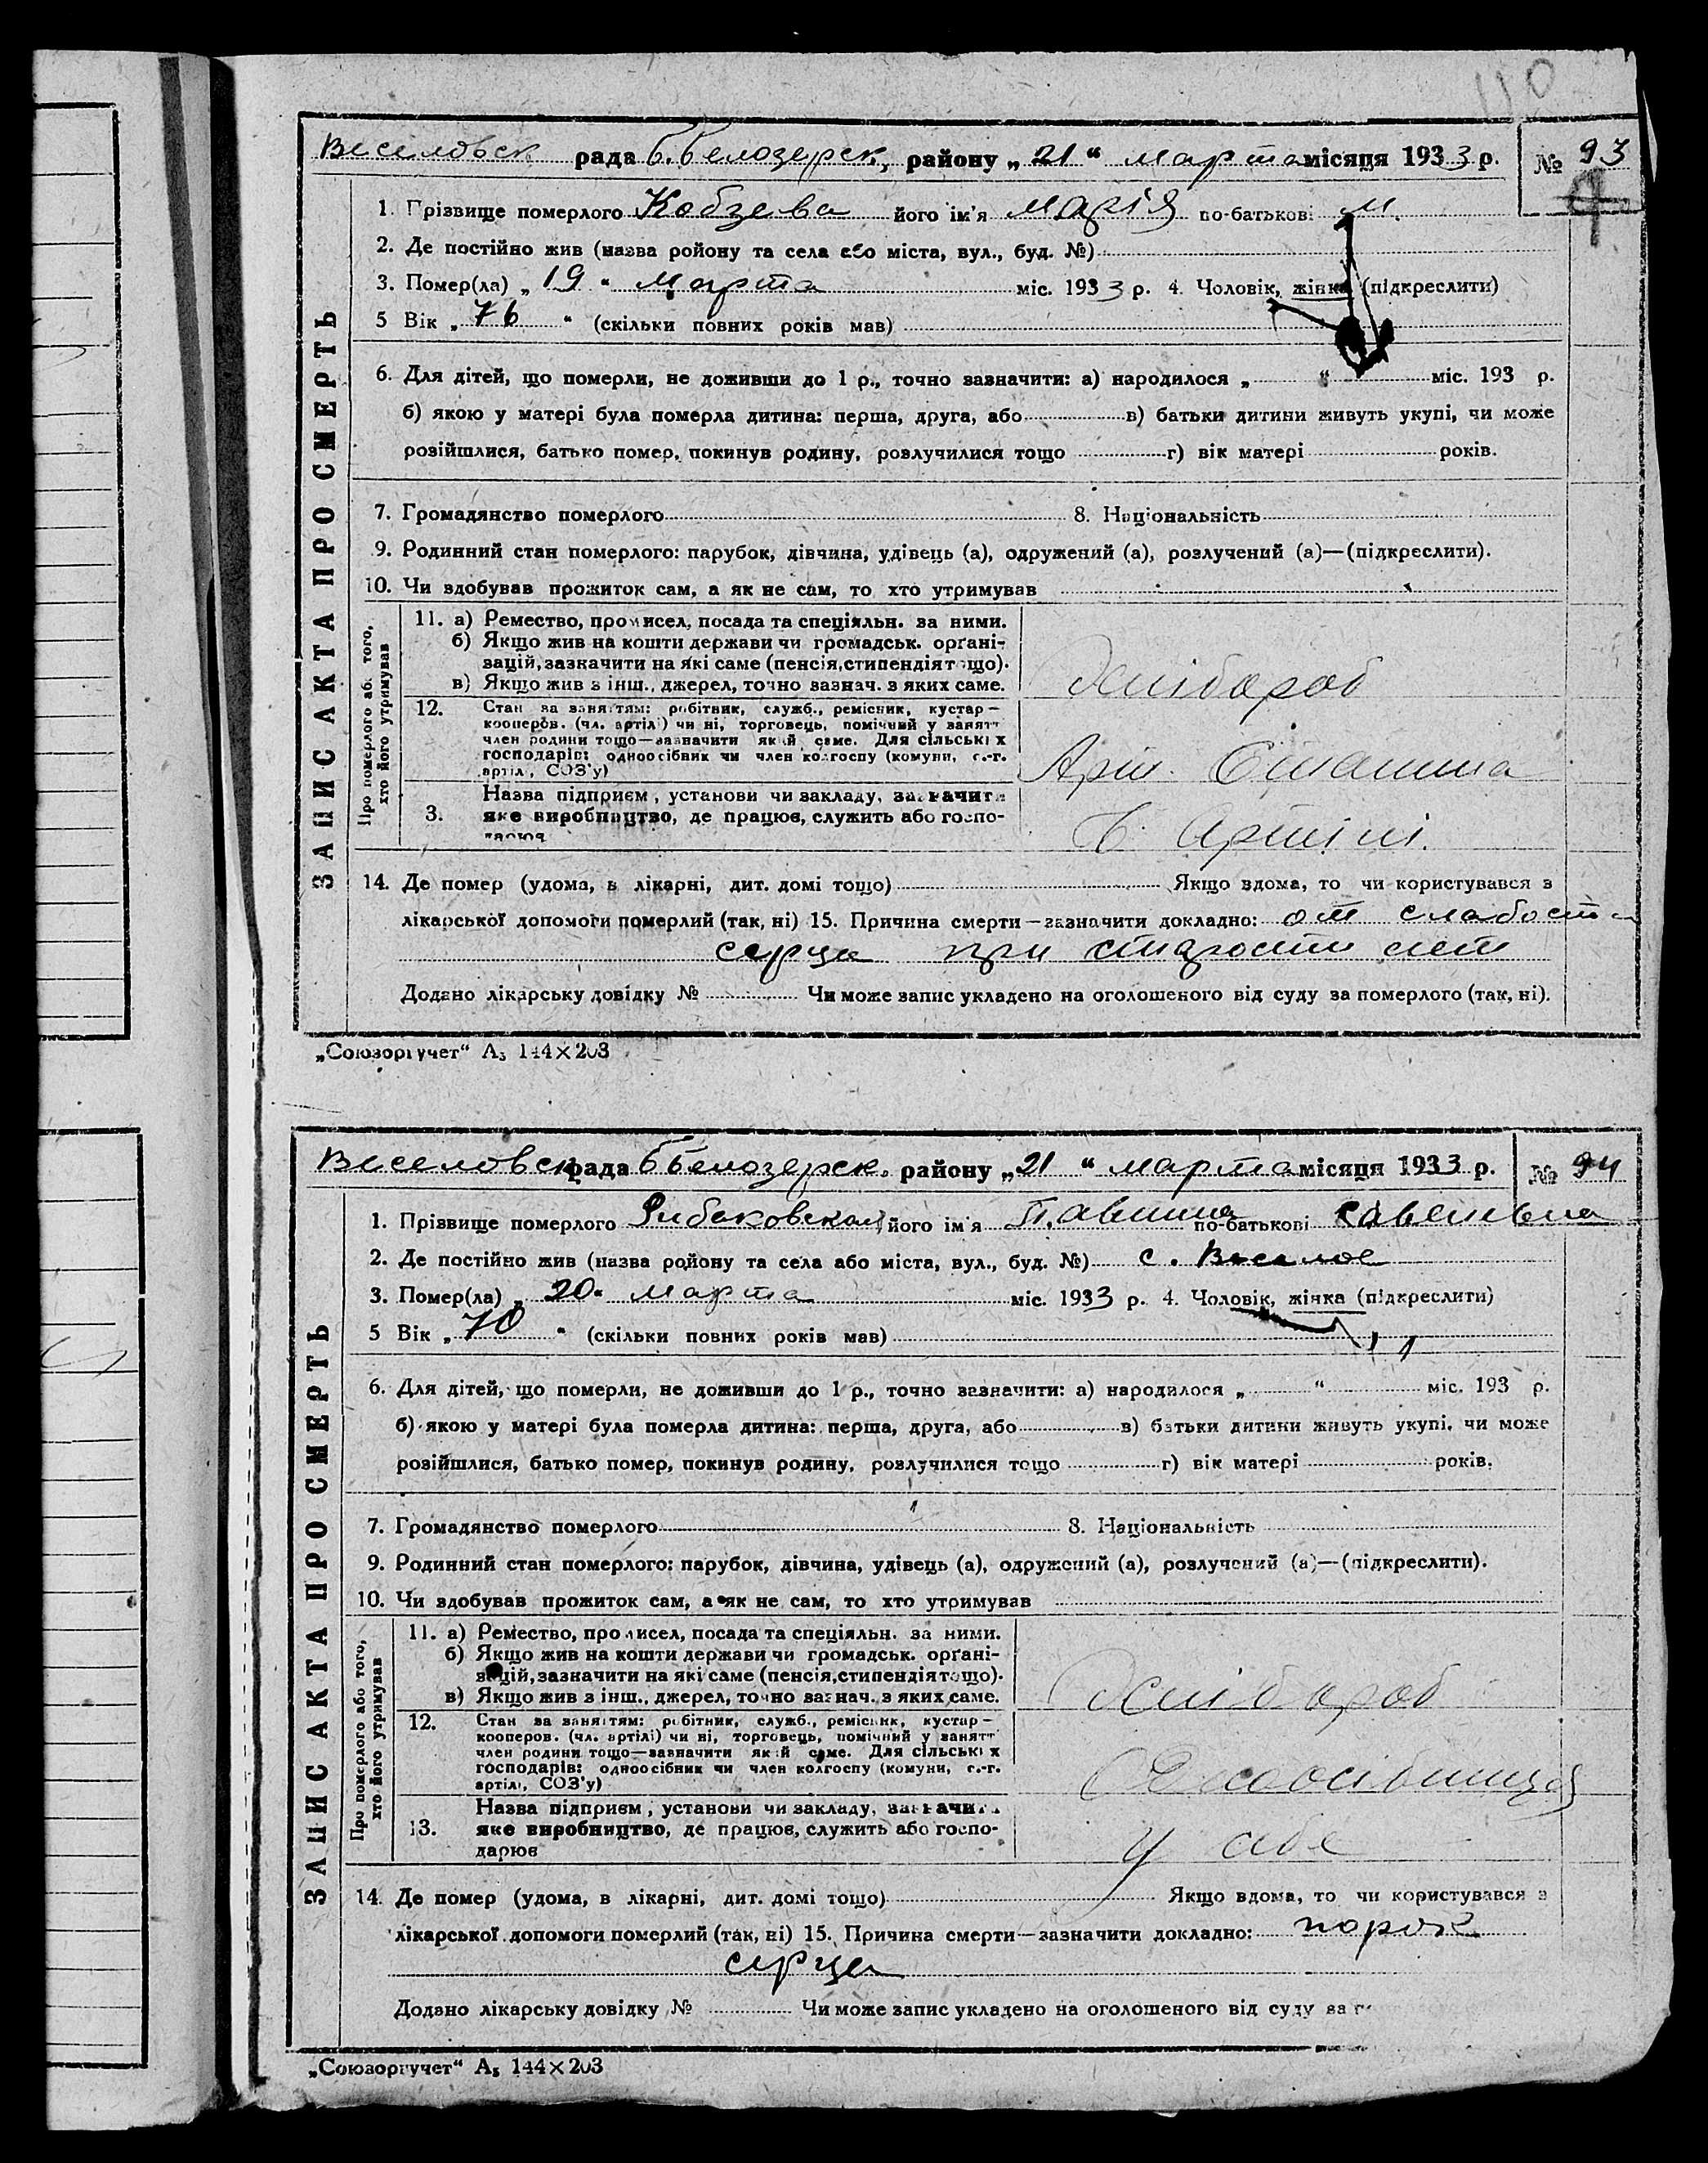 110
Веселовск рада б. белозерск, району „21“ марта місяця 1933 р. № 93
4
ЗАПИС АКТА ПРО СМЕРТЬ
1. Прізвище померлого Кобзева його ім'я Марія по-батькові М.
2. Де постійно жив (назва ройону та села або міста, вул., буд. №)
3. Помер(ла) „19“ Марта міс. 1933 р. 4. Чоловік, жінка (підкреслити)
5 Вік „76“ (скільки повних років мав)
6. Для дітей, що померли, не доживши до 1 р., точно зазначити: а) народилося „ “ міс. 193 р.
б) якою у матері була померла дитина: перша, друга, або в) батьки дитини живуть укупі, чи може
розійшлися, батько помер, покинув родину, розлучилися тощо г) вік матері років.
7. Громадянство померлого 8. Національність
9. Родинний стан померлого: парубок, дівчина, удівець (а), одружений (а), розлучений (а)—(підкреслити).
10. Чи здобував прожиток сам, а як не сам, то хто утримував
Про померлого або того, хто його утримував
11. а) Ремество, промисел, посада та спеціяльн. за ними.
б) Якщо жив на кошти держави чи громадськ. орґані-
зацій, зазначити на які саме (пенсія, стипендія тощо).
в) Якщо жив з інш., джерел, точно зазнач. з яких саме.
Хлібороб
12. Стан за заняттям: робітник, служб., ремісник, кустар—
кооперов. (чл. артілі) чи ні, торговець, помічний у занятт
член родини тощо—зазначити який саме. Для сільськіх
господарів: одноосібник чи член колгоспу (комуни, с.-г.
артіл, СОЗ'у)
Арт.
Назва підприєм, установи чи закладу, зазначити
3. яке виробництво, де працює, служить або госпо-
дарює
В Артілі.
14. Де помер (удома, в лікарні, дит. домі тощо) Якщо вдома, то чи користувався з
лікарської допомоги померлий (так, ні) 15. Причина смерти—зазначити докладно: от слабости
серца при старости лет
Додано лікарську довідку № Чи може запис укладено на оголошеного від суду за померлого (так, ні).
„Союзоргучет“ А₅ 144×203
Веселовск рада б белозерск. району „21“ марта місяця 1933 р. № 94
ЗАПИС АКТА ПРО СМЕРТЬ
1. Прізвище померлого Рибаковская його ім'я по-батькові Савельевна
2. Де постійно жив (назва ройону та села або міста, вул., буд. №) с. Веселое
3. Помер(ла) „20“ марта міс. 1933 р. 4. Чоловік, жінка (підкреслити)
5 Вік „70“ (скільки повних років мав)
6. Для дітей, що померли, не доживши до 1 р., точно зазначити: а) народилося „ “ міс. 193 р.
б) якою у матері була померла дитина: перша, друга, або в) батьки дитини живуть укупі, чи може
розійшлися, батько помер, покинув родину, розлучилися тощо г) вік матері років.
7. Громадянство померлого 8. Національність
9. Родинний стан померлого: парубок, дівчина, удівець (а), одружений (а), розлучений (а)—(підкреслити).
10. Чи здобував прожиток сам, а як не сам, то хто утримував
Про померлого або того, хто його утримував
11. а) Ремество, промисел, посада та спеціяльн. за ними.
б) Якщо жив на кошти держави чи громадськ. орґані-
зацій, зазначити на які саме (пенсія, стипендія тощо).
в) Якщо жив з інш., джерел, точно зазнач. з яких саме.
Хлібороб
12. Стан за заняттям: робітник, служб., ремісник, кустар—
кооперов. (чл. артілі) чи ні, торговець, помічний у занятт
член родини тощо—зазначити який саме. Для сільськіх
господарів: одноосібник чи член колгоспу (комуни, с.-г.
артіл, СОЗ'у)
Одноосібниця
Назва підприєм, установи чи закладу, зазначи
13. яке виробництво, де працює, служить або госпо-
дарює
у себе
14. Де помер (удома, в лікарні, дит. домі тощо) Якщо вдома, то чи користувався з
лікарської допомоги померлий (так, ні) 15. Причина смерти—зазначити докладно: порок
серца
Додано лікарську довідку № Чи може запис укладено на оголошеного від суду за п
„Союзоргучет“ А₅ 144×203